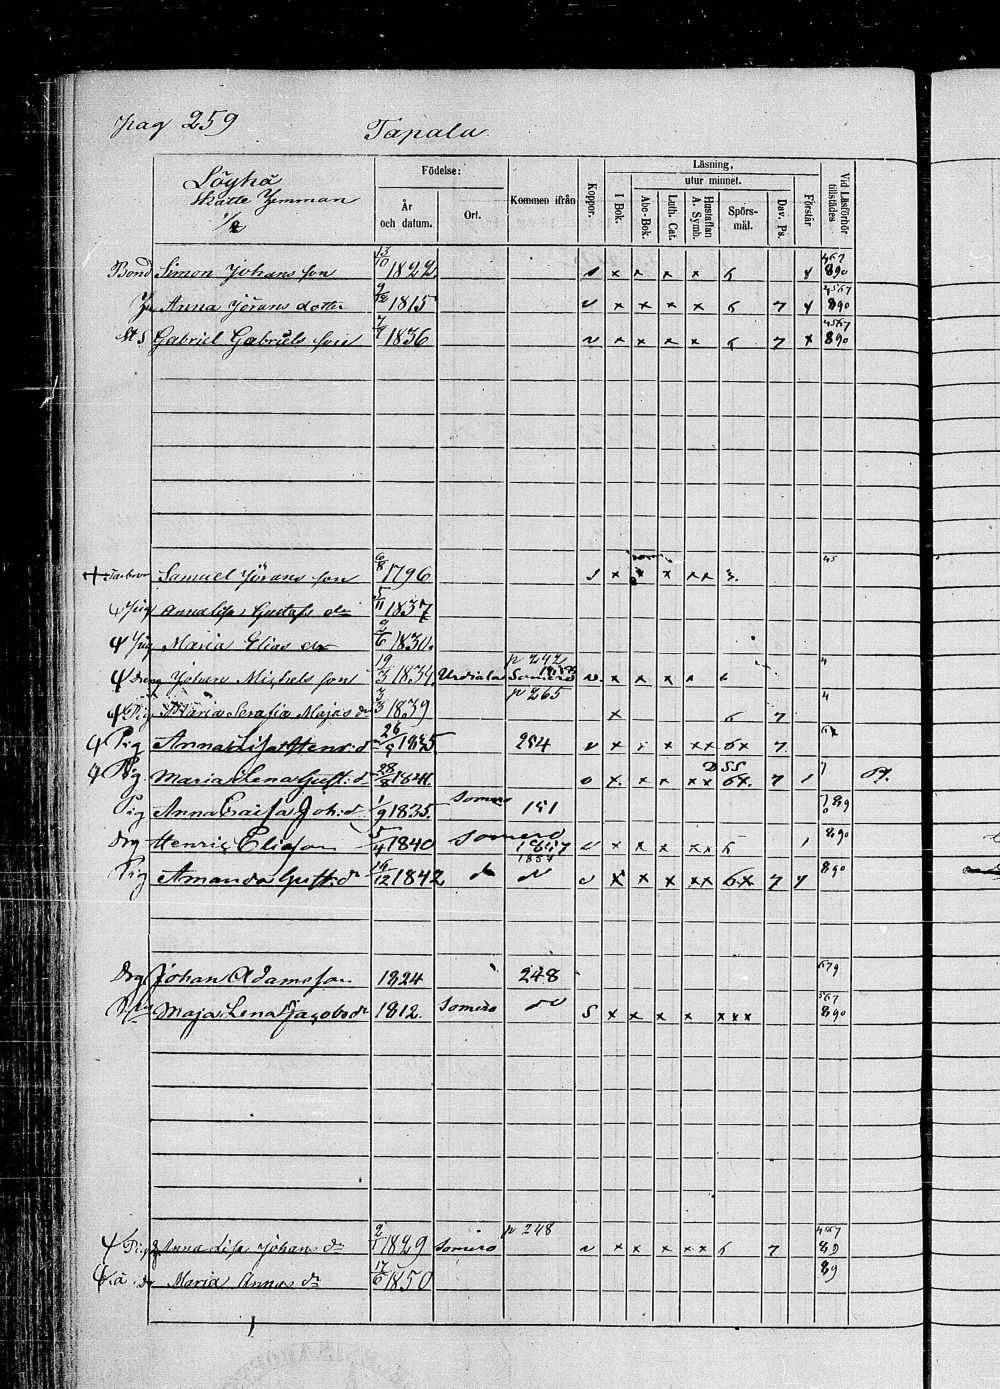 pag 259
Tapala
Löyhä
Skatte Hemman
1/2
Födelse:
År och datum.
Ort.
Kommen ifrån
Koppor.
Läsning,
I Bok.
utur minnet.
Abc-Bok.
Luth. Cat.
Hustaflan A. Symb.
Spörs-mål.
Dav. Ps.
Förstår
Vid Läsförhör tillstädes
Bond Simon Johans son 13/10 1822 x x x x 6 890
Anna Jörans dotter 9/12 1815 v x x x x 6 7 4567 890
Gabriel Gabriels son 1836 v x x x x 6 7 x 4567 890
Samuel Jörans son 6/8 1796 s x x x xx 3. 45
Annalisa Gustafs dr 5/11 1837
Maria Elias dr 9/6 1830.
Johan Michels son 19/3 1834 Urdiala p 242 Somero v x x x x 6 4
Pig Maria Serafia Majas dr 3/3 1839 p 265 x 6 7 4
Pig Anna Lisa Henr: d 1835 254 v x x x xx 6x 7. 67
Pig. Maria Lena Gust: d 28/8 1841. D SS o x. x x xx 6x. 7 1 7
Pig Anna Caisa Joh: d 1/9 1835. Somero 151 7 89
Drg Henric Elias son 5/4 1840 Somero 1857 v x x x xx 6 1 890
Pig Amanda Gust: dr 16/12 1842 do 1857 do v x x x xx 6x 7 7 890
Drg Johan Adamsson 1824 248 679
Maja Lena Jacobs dr 1812. Somero do S x x x x xxx 567 890
Pig Anna Lisa Johans dr 2/1 1829 Somero p 248 v x x x xx 6 7 4567 89
Maria Annas dr 17/6 1850 89